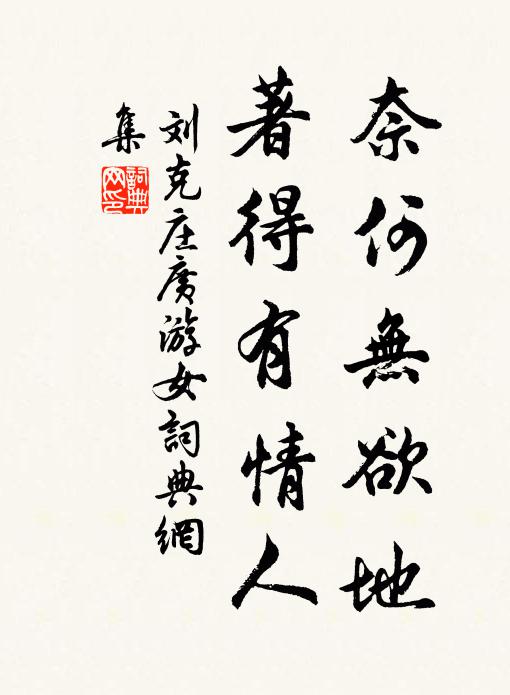 奈何無欲地
著得有情人
刘克庄廣游女詞典網
集
詞典网印